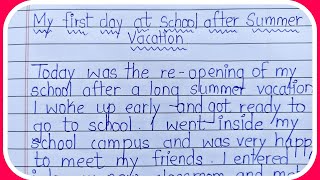 My first day at school after Summer
Vacation
Today was the re-opening of my
school after a long summer vacation
I woke up early and got ready to
go to school. I went inside my
school campus and was very happ
to meet my friends. I entered